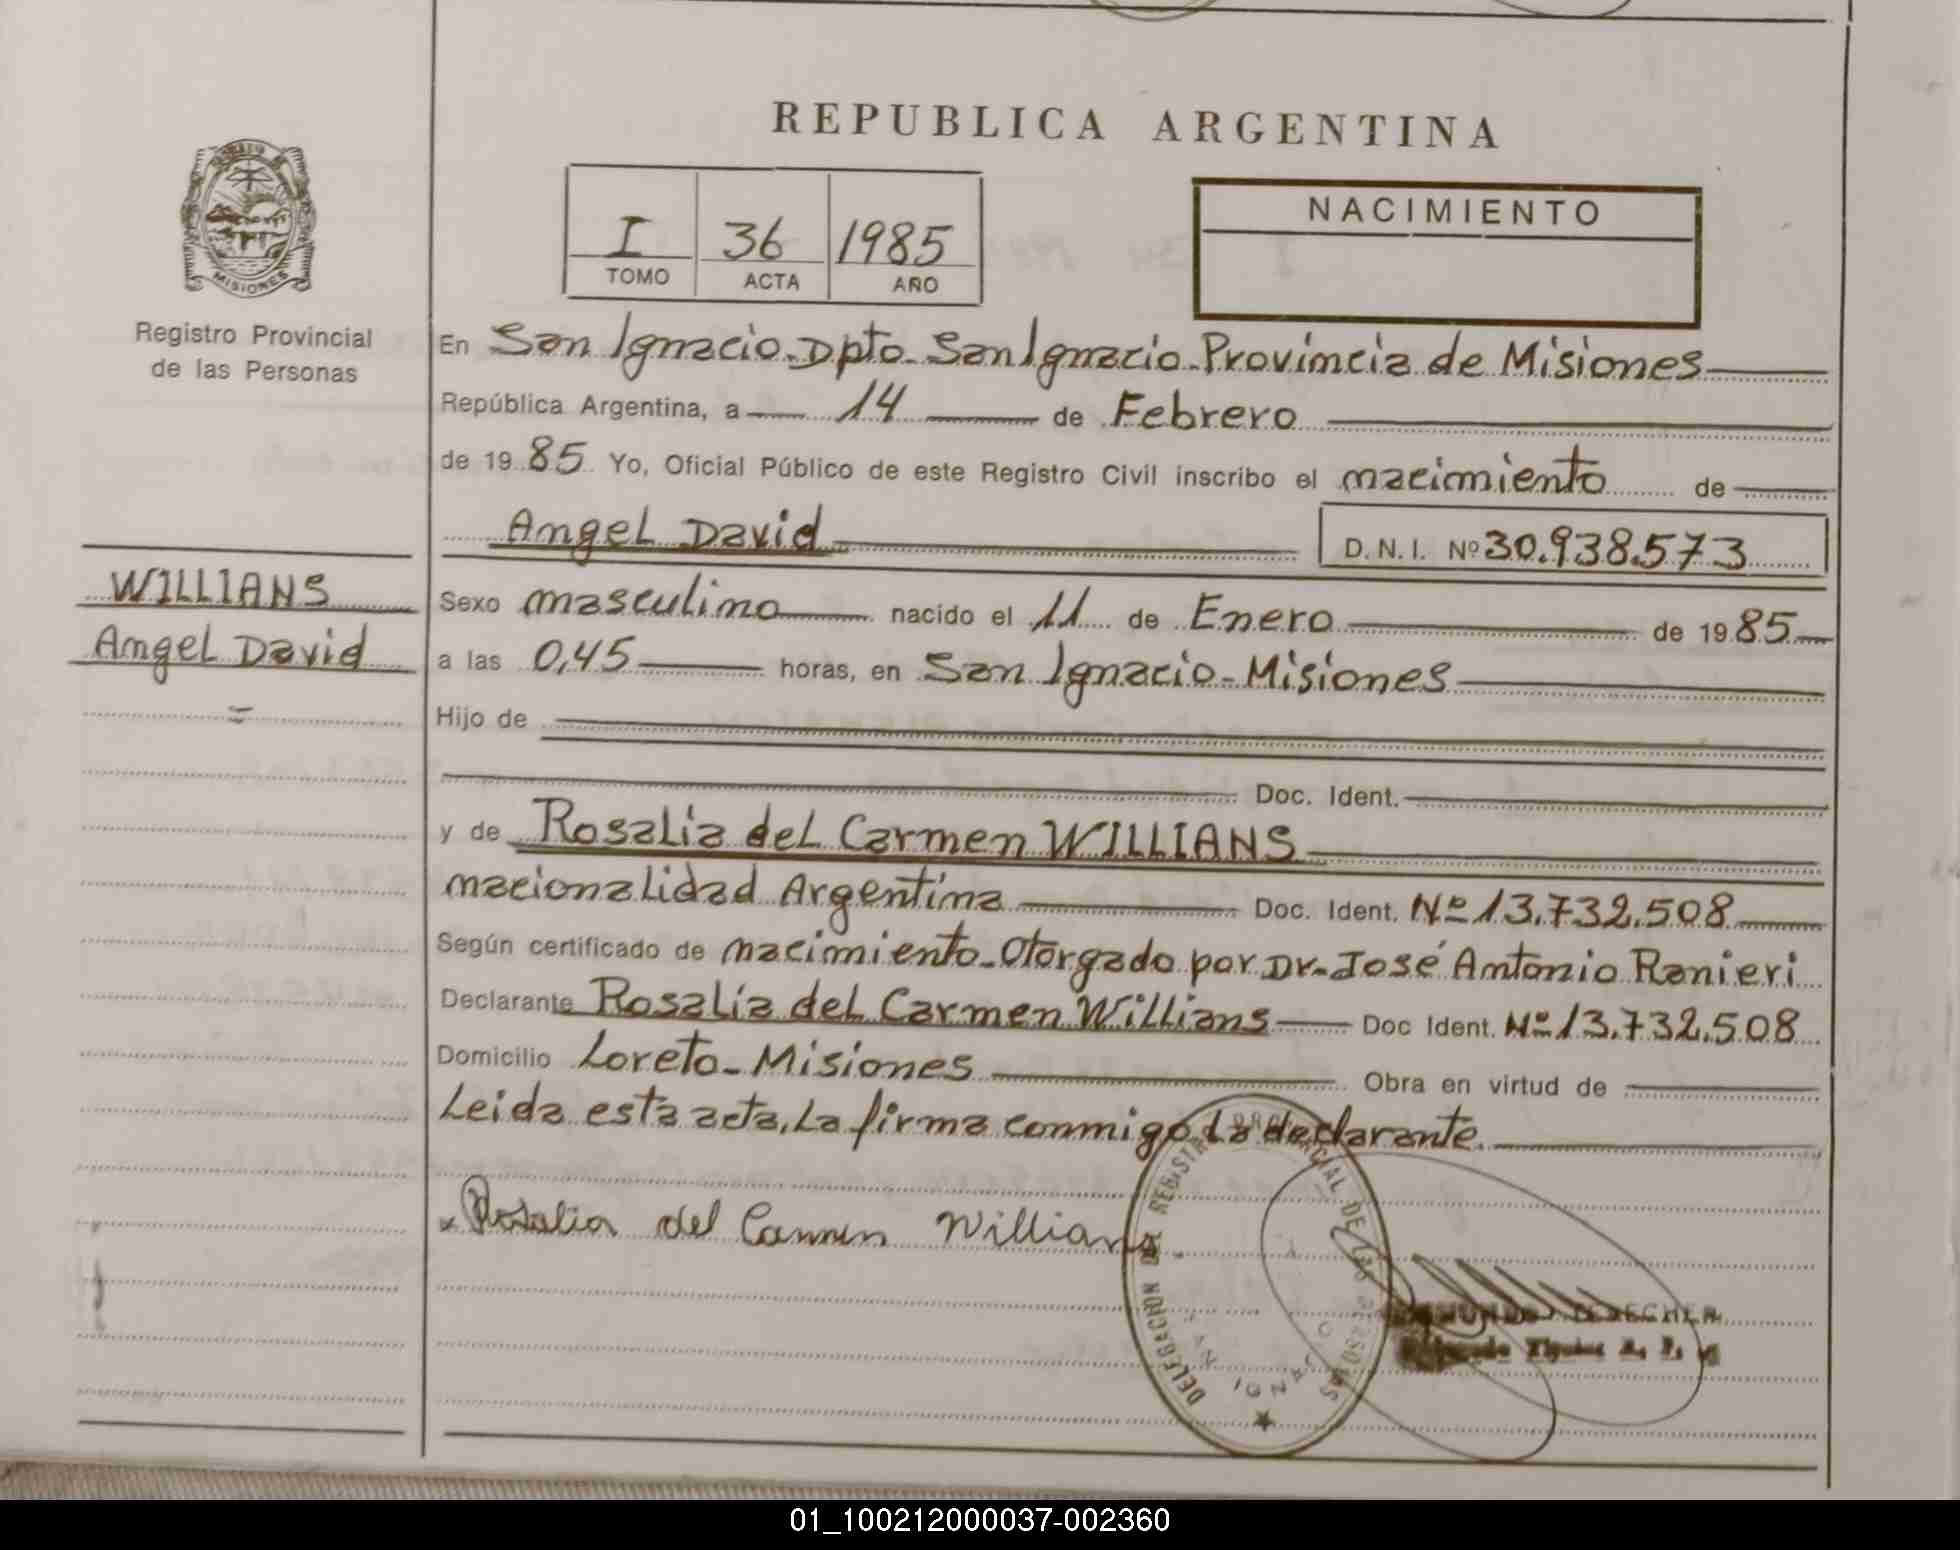 REPUBLICA ARGENTINA
MISIONES
Registro Provincial
de las Personas
I 36 1985
TOMO ACTA AÑO
NACIMIENTO
En San Ignacio - Dpto - San Ignacio - Provincia de Misiones
República Argentina, a 14 de Febrero
de 1985 Yo, Oficial Público de este Registro Civil inscribo el nacimiento de
Angel David D.N.I. Nº 30.938.573
WILLIANS
Angel David
Sexo masculino nacido el 11 de Enero de 1985
a las 0,45 horas, en San Ignacio - Misiones
Hijo de
Doc. Ident.
y de Rosalia del Carmen WILLIANS
nacionalidad Argentina Doc. Ident. Nº 13.732.508
Según certificado de nacimiento - Otorgado por Dr. José Antonio Ranieri
Declarante Rosalia del Carmen Willians Doc Ident. Nº 13.732.508
Domicilio Loreto - Misiones Obra en virtud de
Leida esta acta, La firma conmigo La declarante.
x Rosalia del Carmen Willians.
DELEGACION DEL REGISTRO PROVINCIAL DE LAS PERSONAS
SAN IGNACIO
01_100212000037-002360